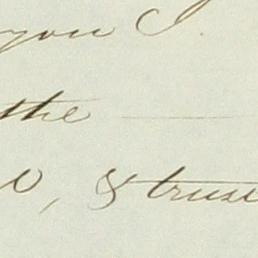 you I
the
, & trust